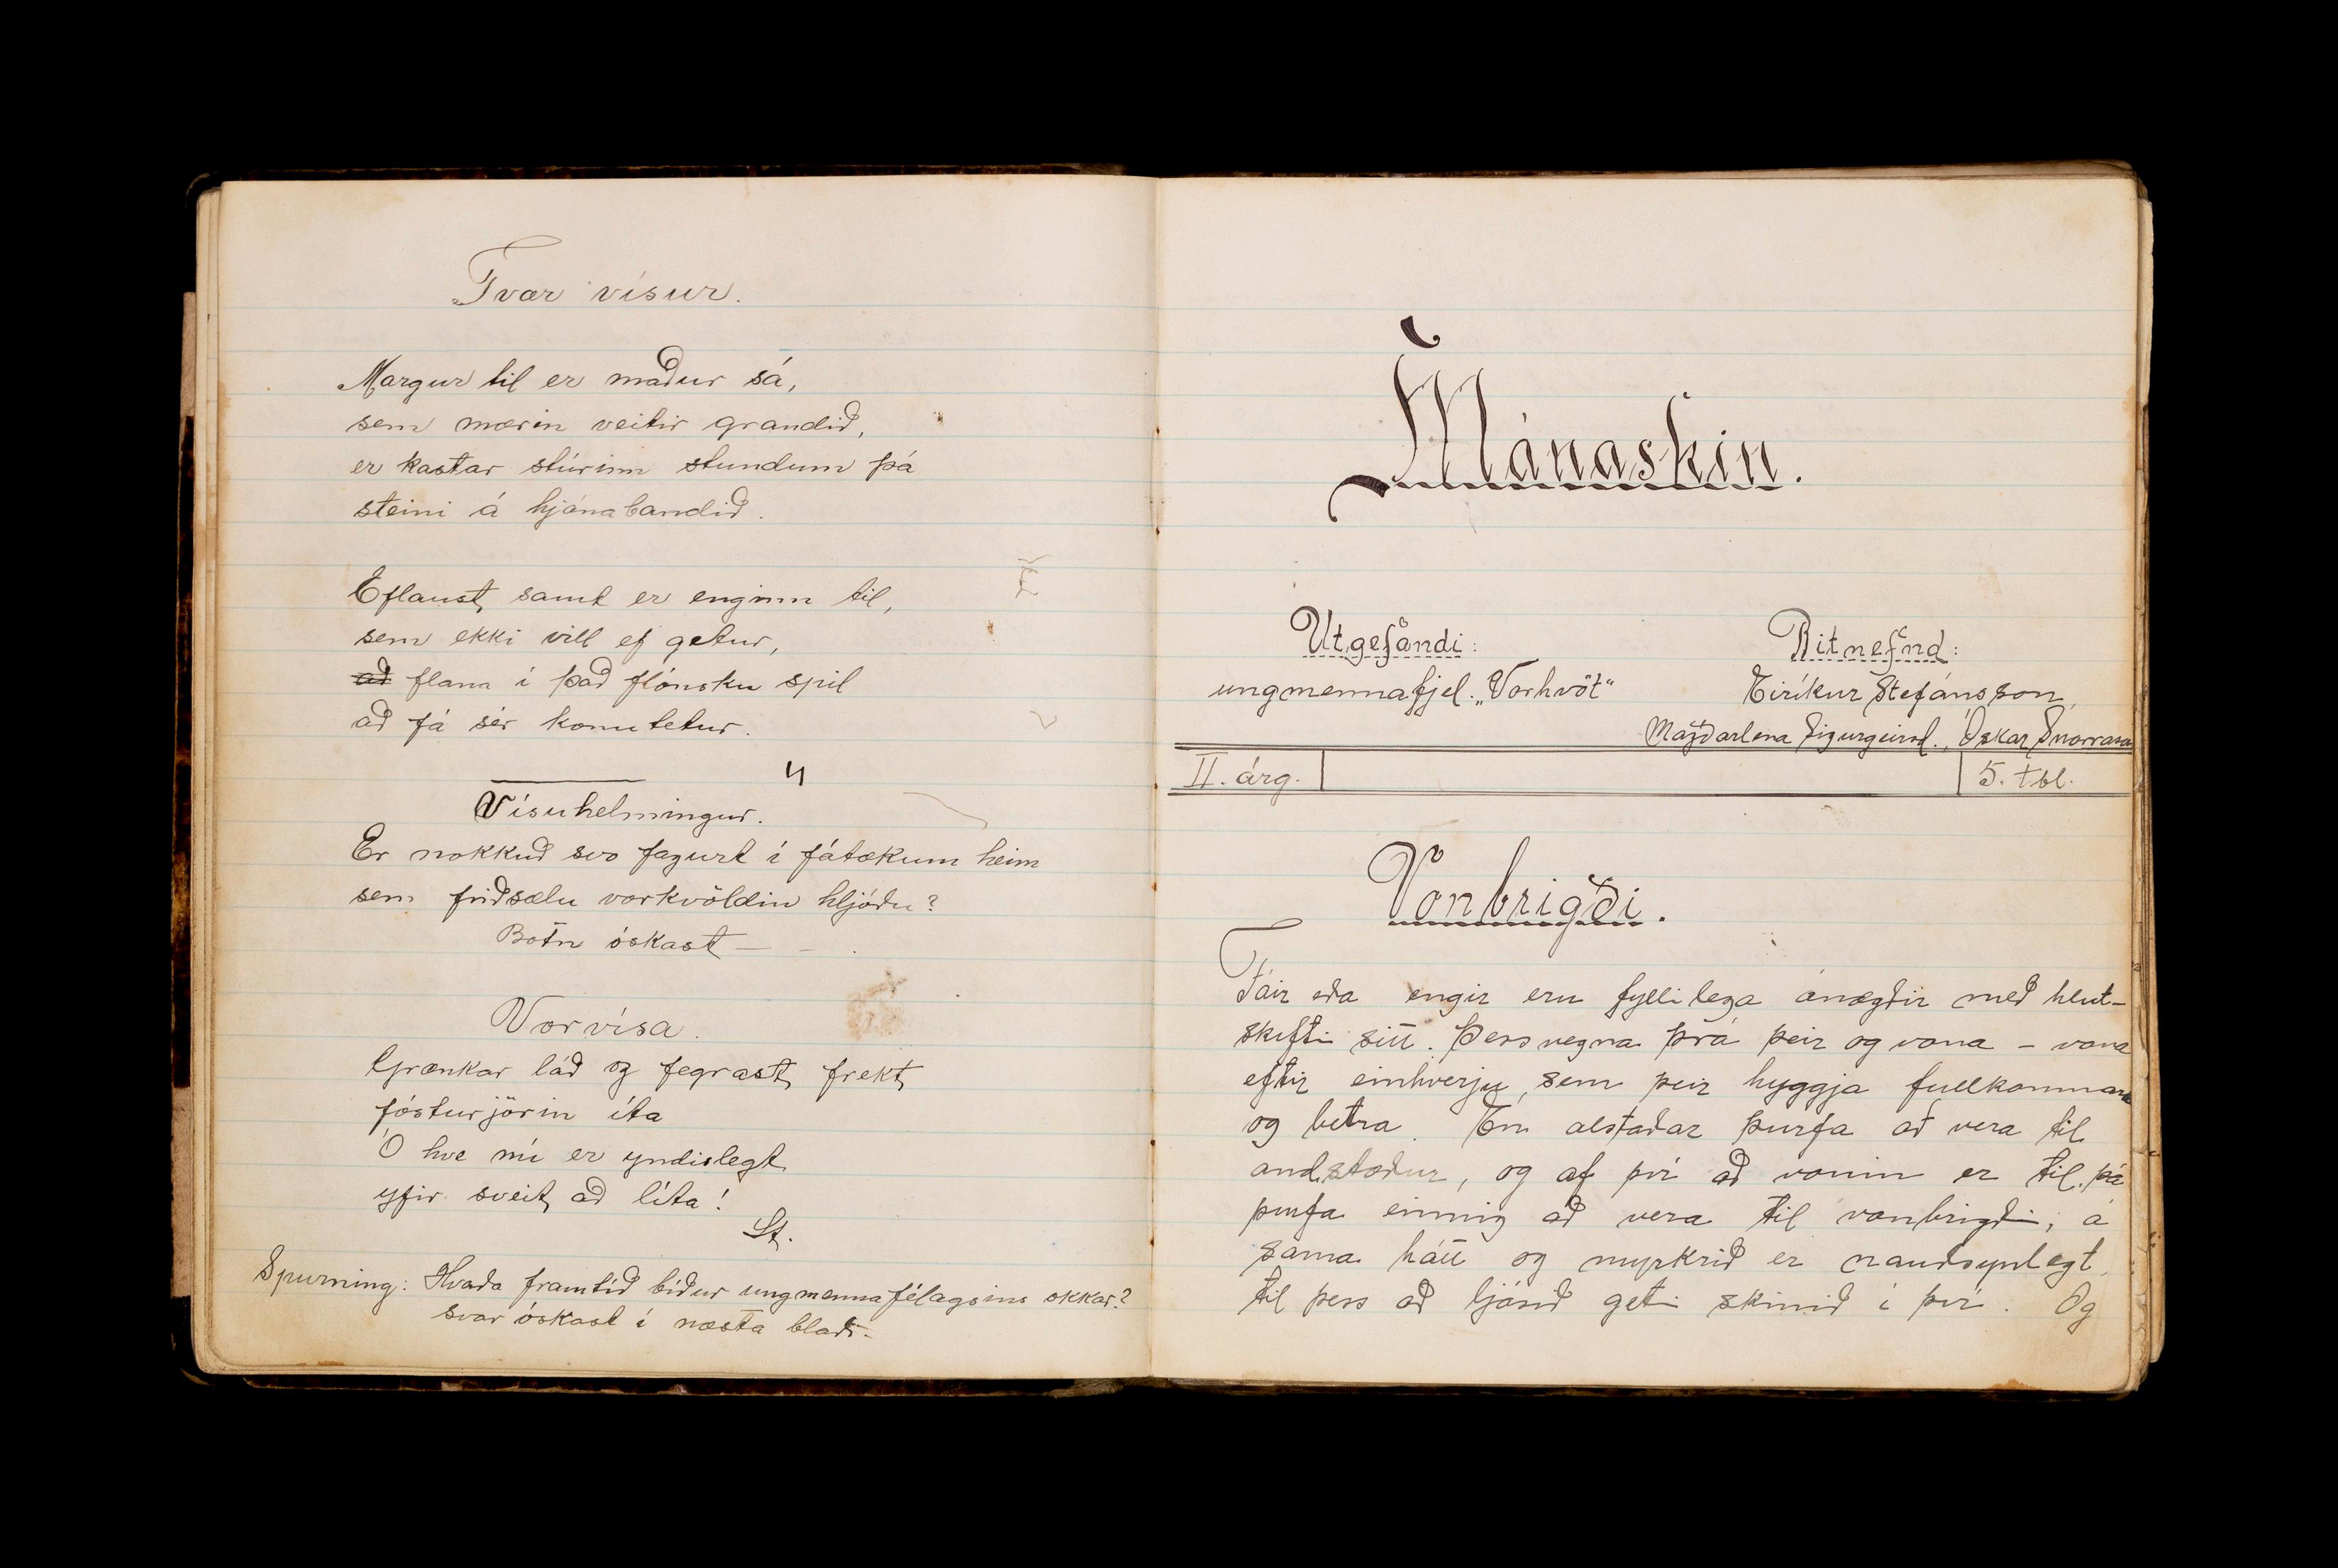 Tvær vísur.
Margur til er maður sá,
sem mærin veitir grandið,
er kastar stúrinn stundum þá
steini á hjónabandið.
Eflaust, samt er enginn til,
sem ekki vill ef getur,
að flana í það flónsku spil
að fá sér konutetur.
4
Vísuhelmingur.
Er nokkuð svo fagurt í fátækum heim
sem friðsælu vorkvöldin hljóðu?
Botn óskast —
Vorvísa.
Grænkar láð og fegrast frekt,
fósturjörin íta
Ó hve nú er yndislegt
yfir sveit að líta!
St.
Spurning: Hvaða framtíð bíður ungmennafélagsins okkar?
svar óskast í næsta blaði.
Mánaskin.
Utgefandi:
ungmennafjel. „Vorhvöt“
Ritnefnd:
Eiríkur Stefánsson,
Magðarlena Sigurgeirsd., Óskar Snorrason
II. árg.
5. tbl.
Vonbrigði.
Fáir eða engir eru fyllilega ánægðir með hlut-
skifti sitt. Þessvegna þrá þeir og vona – vona
eftir einhverju, sem þeir hyggja fullkomnara
og betra. En alstaðar þurfa að vera til
andstæður, og af því að vonin er til, þá
þurfa einnig að vera til vonbrigði, á
sama hátt og myrkrið er nauðsynlegt,
til þess að ljósið geti skinið í því. Og